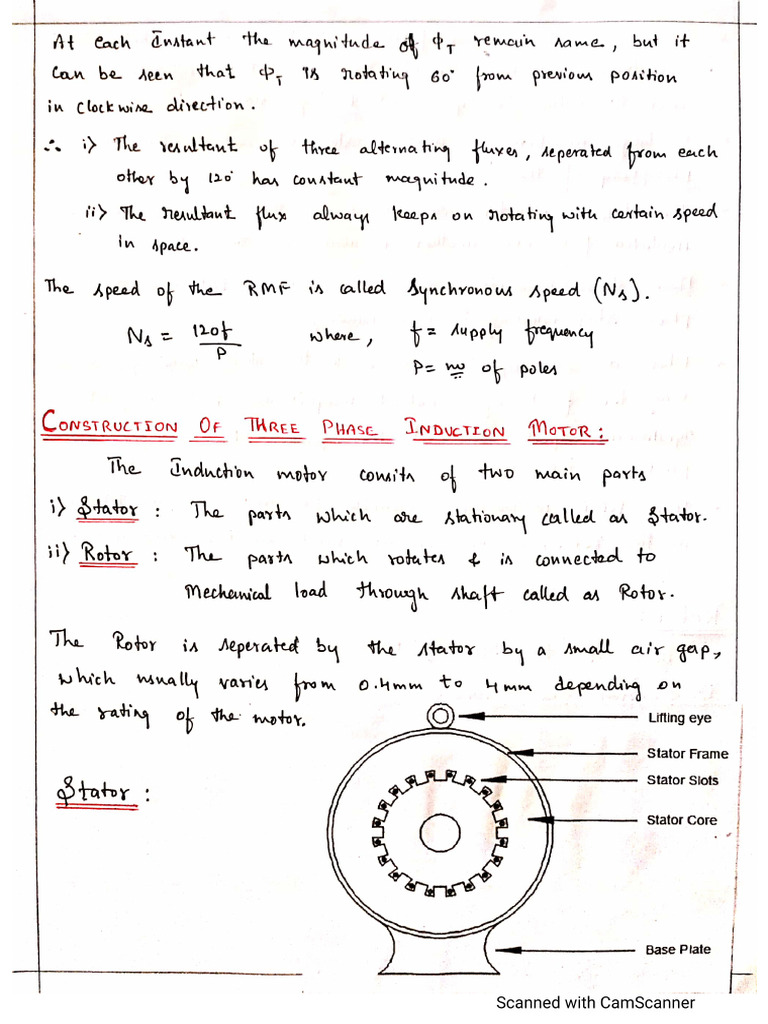 At each Instant the magnitude of ΦT remain same, but it
can be seen that ΦT is rotating 60° from previous position
in clockwise direction.
∴ i) The resultant of three alternating fluxes, seperated from each
other by 120° has constant magnitude.
ii) The resultant flux always keeps on rotating with certain speed
in space.
The speed of the RMF is called Synchronous speed (Ns).
Ns = 120f/P where, f = supply frequency
P = no of poles
CONSTRUCTION OF THREE PHASE INDUCTION MOTOR:
The Induction motor consits of two main parts
i) Stator : The parts which are stationary called as Stator.
ii) Rotor : The parts which rotates & is connected to
Mechanical load through shaft called as Rotor.
The Rotor is seperated by the stator by a small air gap,
which usually varies from 0.4mm to 4mm depending on
the rating of the motor.
Lifting eye
Stator Frame
Stator Slots
Stator :
Stator Core
Base Plate
Scanned with CamScanner